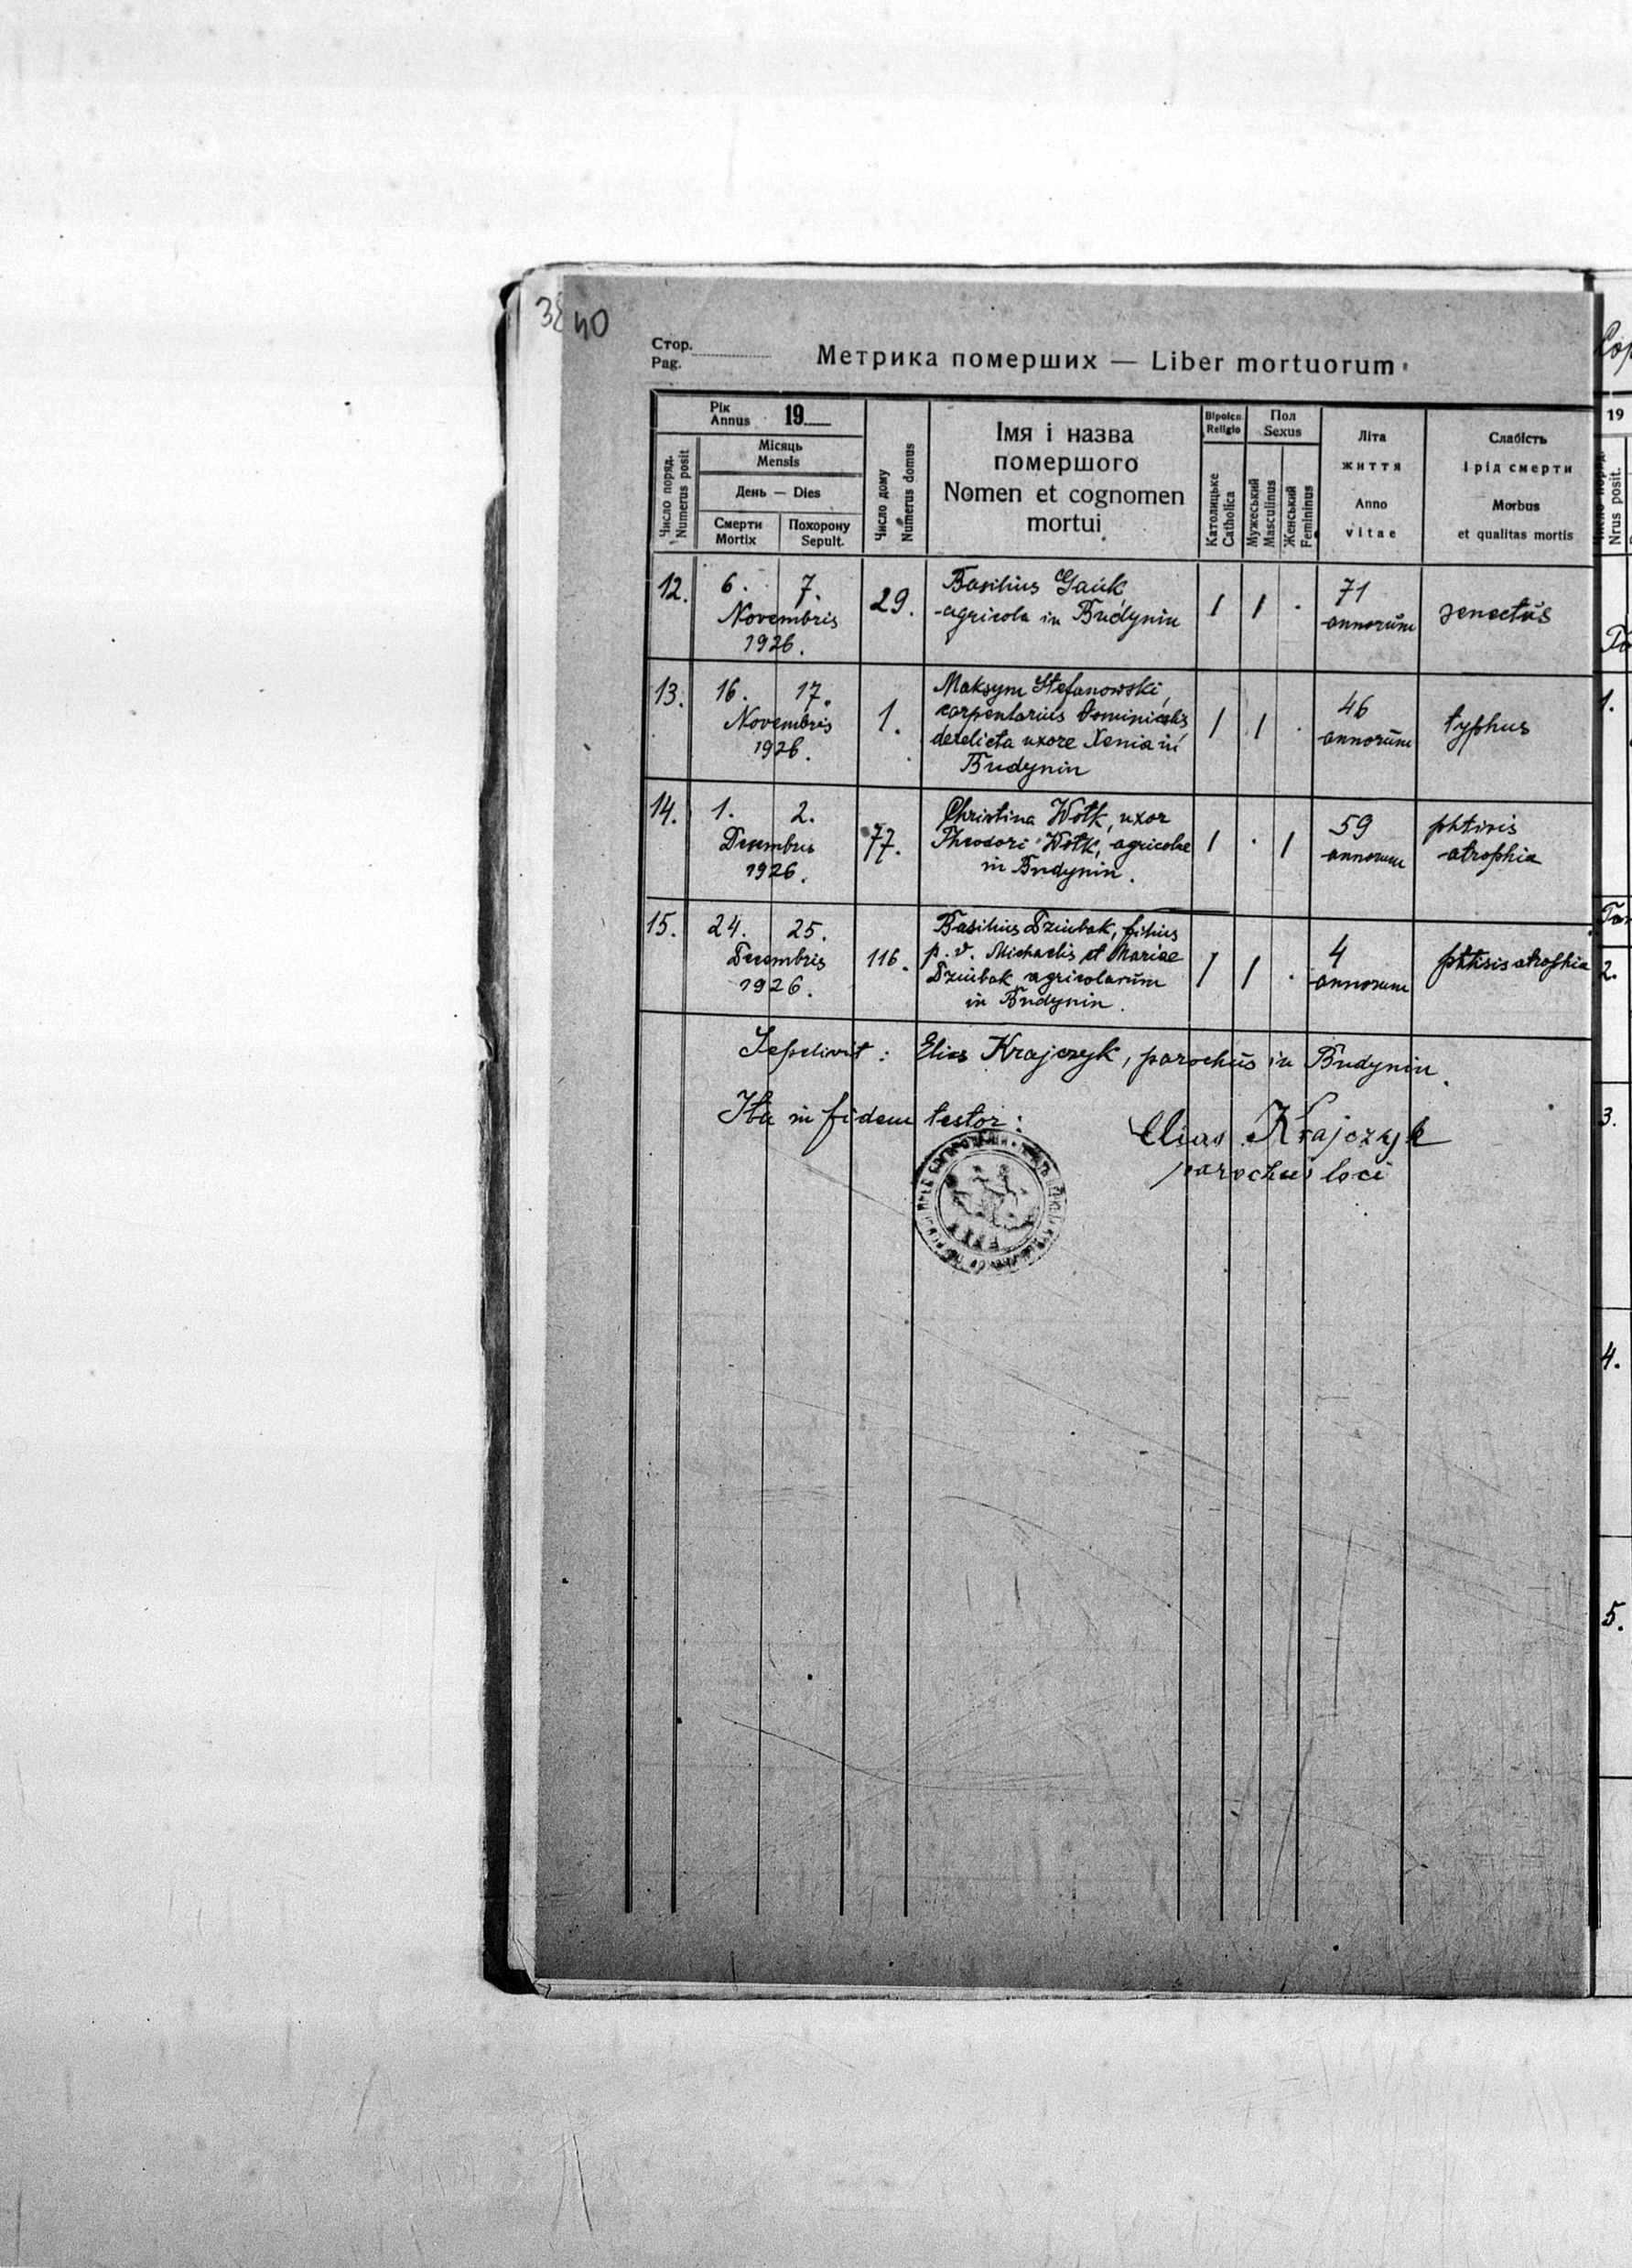 38 40
Стор.
Pag.
Метрика померших — Liber mortuorum
Рік
Annus 19
Число поряд.
Numerus posit
Місяць
Mensis
День — Dies
Смерти
Mortix
Похорону
Sepult.
Число дому
Numerus domus
Імя і назва
помершого
Nomen et cognomen
mortui
Віроісп.
Religio
Католицьке
Catholica
Пол
Sexus
Мужеський
Masculinus
Женський
Femininus
Літа
життя
Anno
vitae
Слабість
і рід смерти
Morbus
et qualitas mortis
12. 6. 7. 29. Basilius Gaŭk 1 1 . 71 senectŭs
Novembris agricola in Bŭdynin annorŭm
1926.
13. 16. 17. 1. Maksym Stefanowski, 1 1 . 46 typhus
Novembris carpentariŭs dominicalis annorŭm
1926. derelicta uxore Xenia in
Budynin
14. 1. 2. 77. Christina Wołk, uxor 1 . 1 59 phtisis
Decembris Theodori Wołk, agricolae annorum atrophia
1926. in Budynin.
15. 24. 25. 116. Basilius Dziubak, filius 1 1 . 4 phtisis atrophia
Decembris p. v. Michaelis et Mariae annorum
1926. Dziubak agricolarŭm
in Budynin.
Sepelivit: Elias Krajczyk, parochŭs in Budynin.
Ita in fidem testor:
Elias Krajczyk
parochus loci
19
Nrus posit.
1.
2.
3.
4.
5.